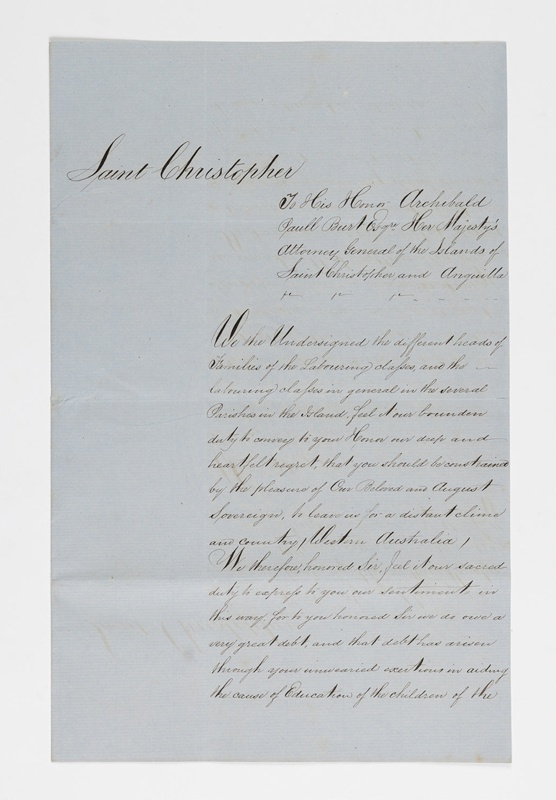 Saint Christopher
To His Honor Archibald
Paull Burt Esqre. Her Majesty's
Attorney General of the Islands of
Saint Christopher, and Anguilla
We the Undersigned the different heads of
Families of the Labouring classes, and the
labouring classes in general in the several
Parishes in the Island, feel it our bounden
duty to convey to your Honor our deep and
heartfelt regret, that you should be constrained
by the pleasure of Our Beloved and August
Sovereign, to leave us for a distant clime
and country, (Western Australia)
We therefore, honored Sir, feel it our sacred
duty to express to you our sentiments in
this way, for to you honored Sir we do owe a
very great debt, and that debt has arisen
through your unwearied exertions in aiding
the cause of Education of the children of the